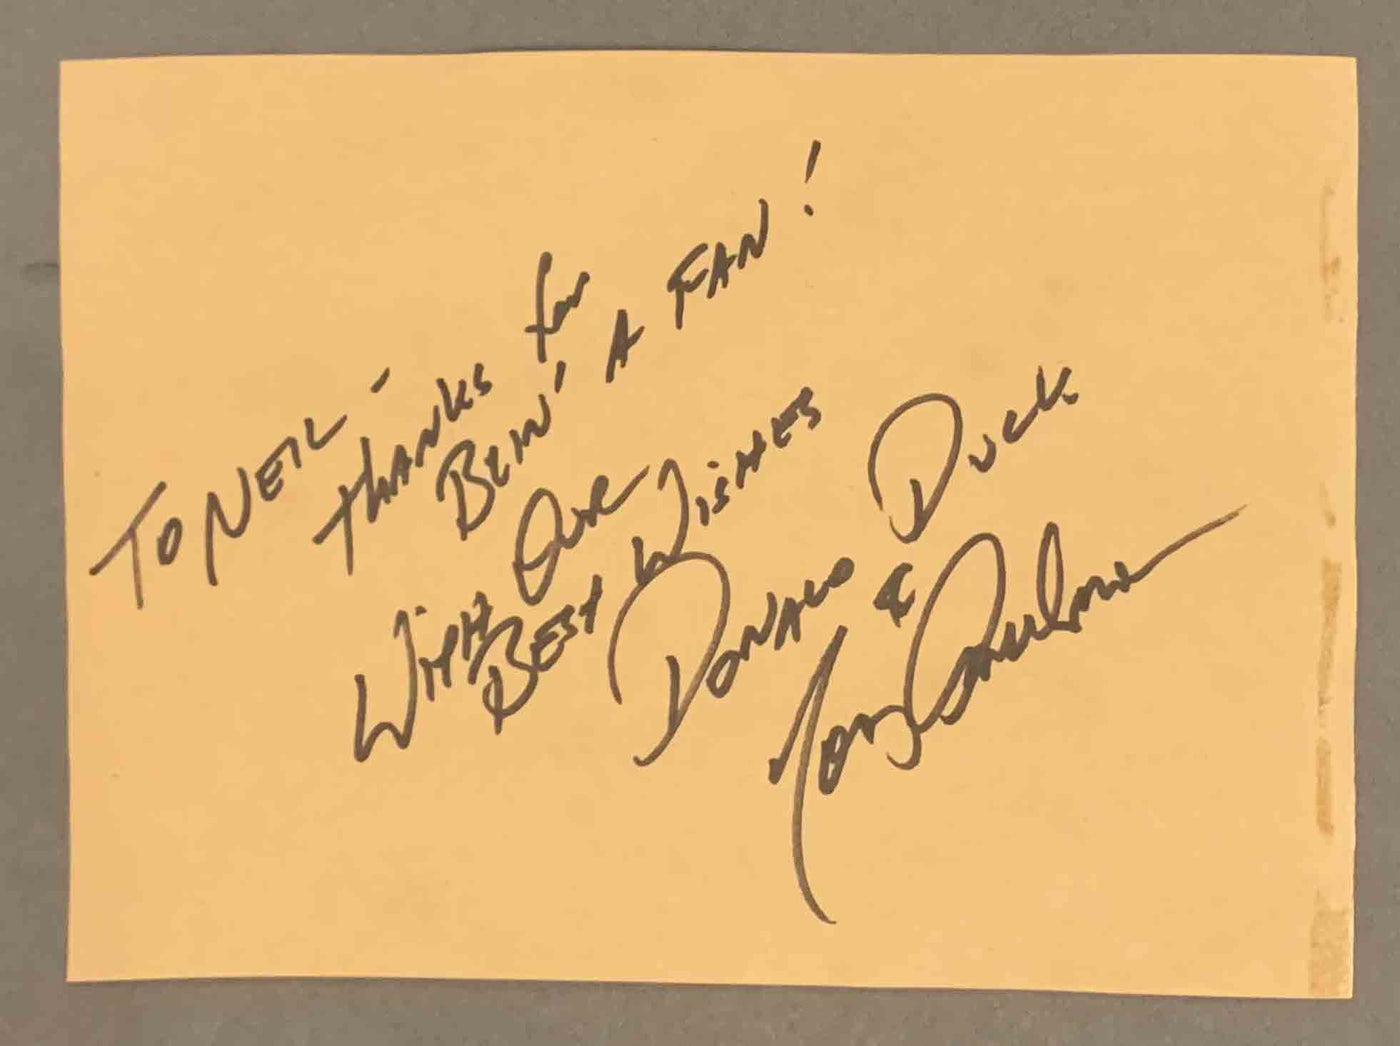 To NEIL -
THANKS for
BEIN' A FAN!
WITH OUR
BEST WISHES
DONALD DUCK
&
Tony Anselmo